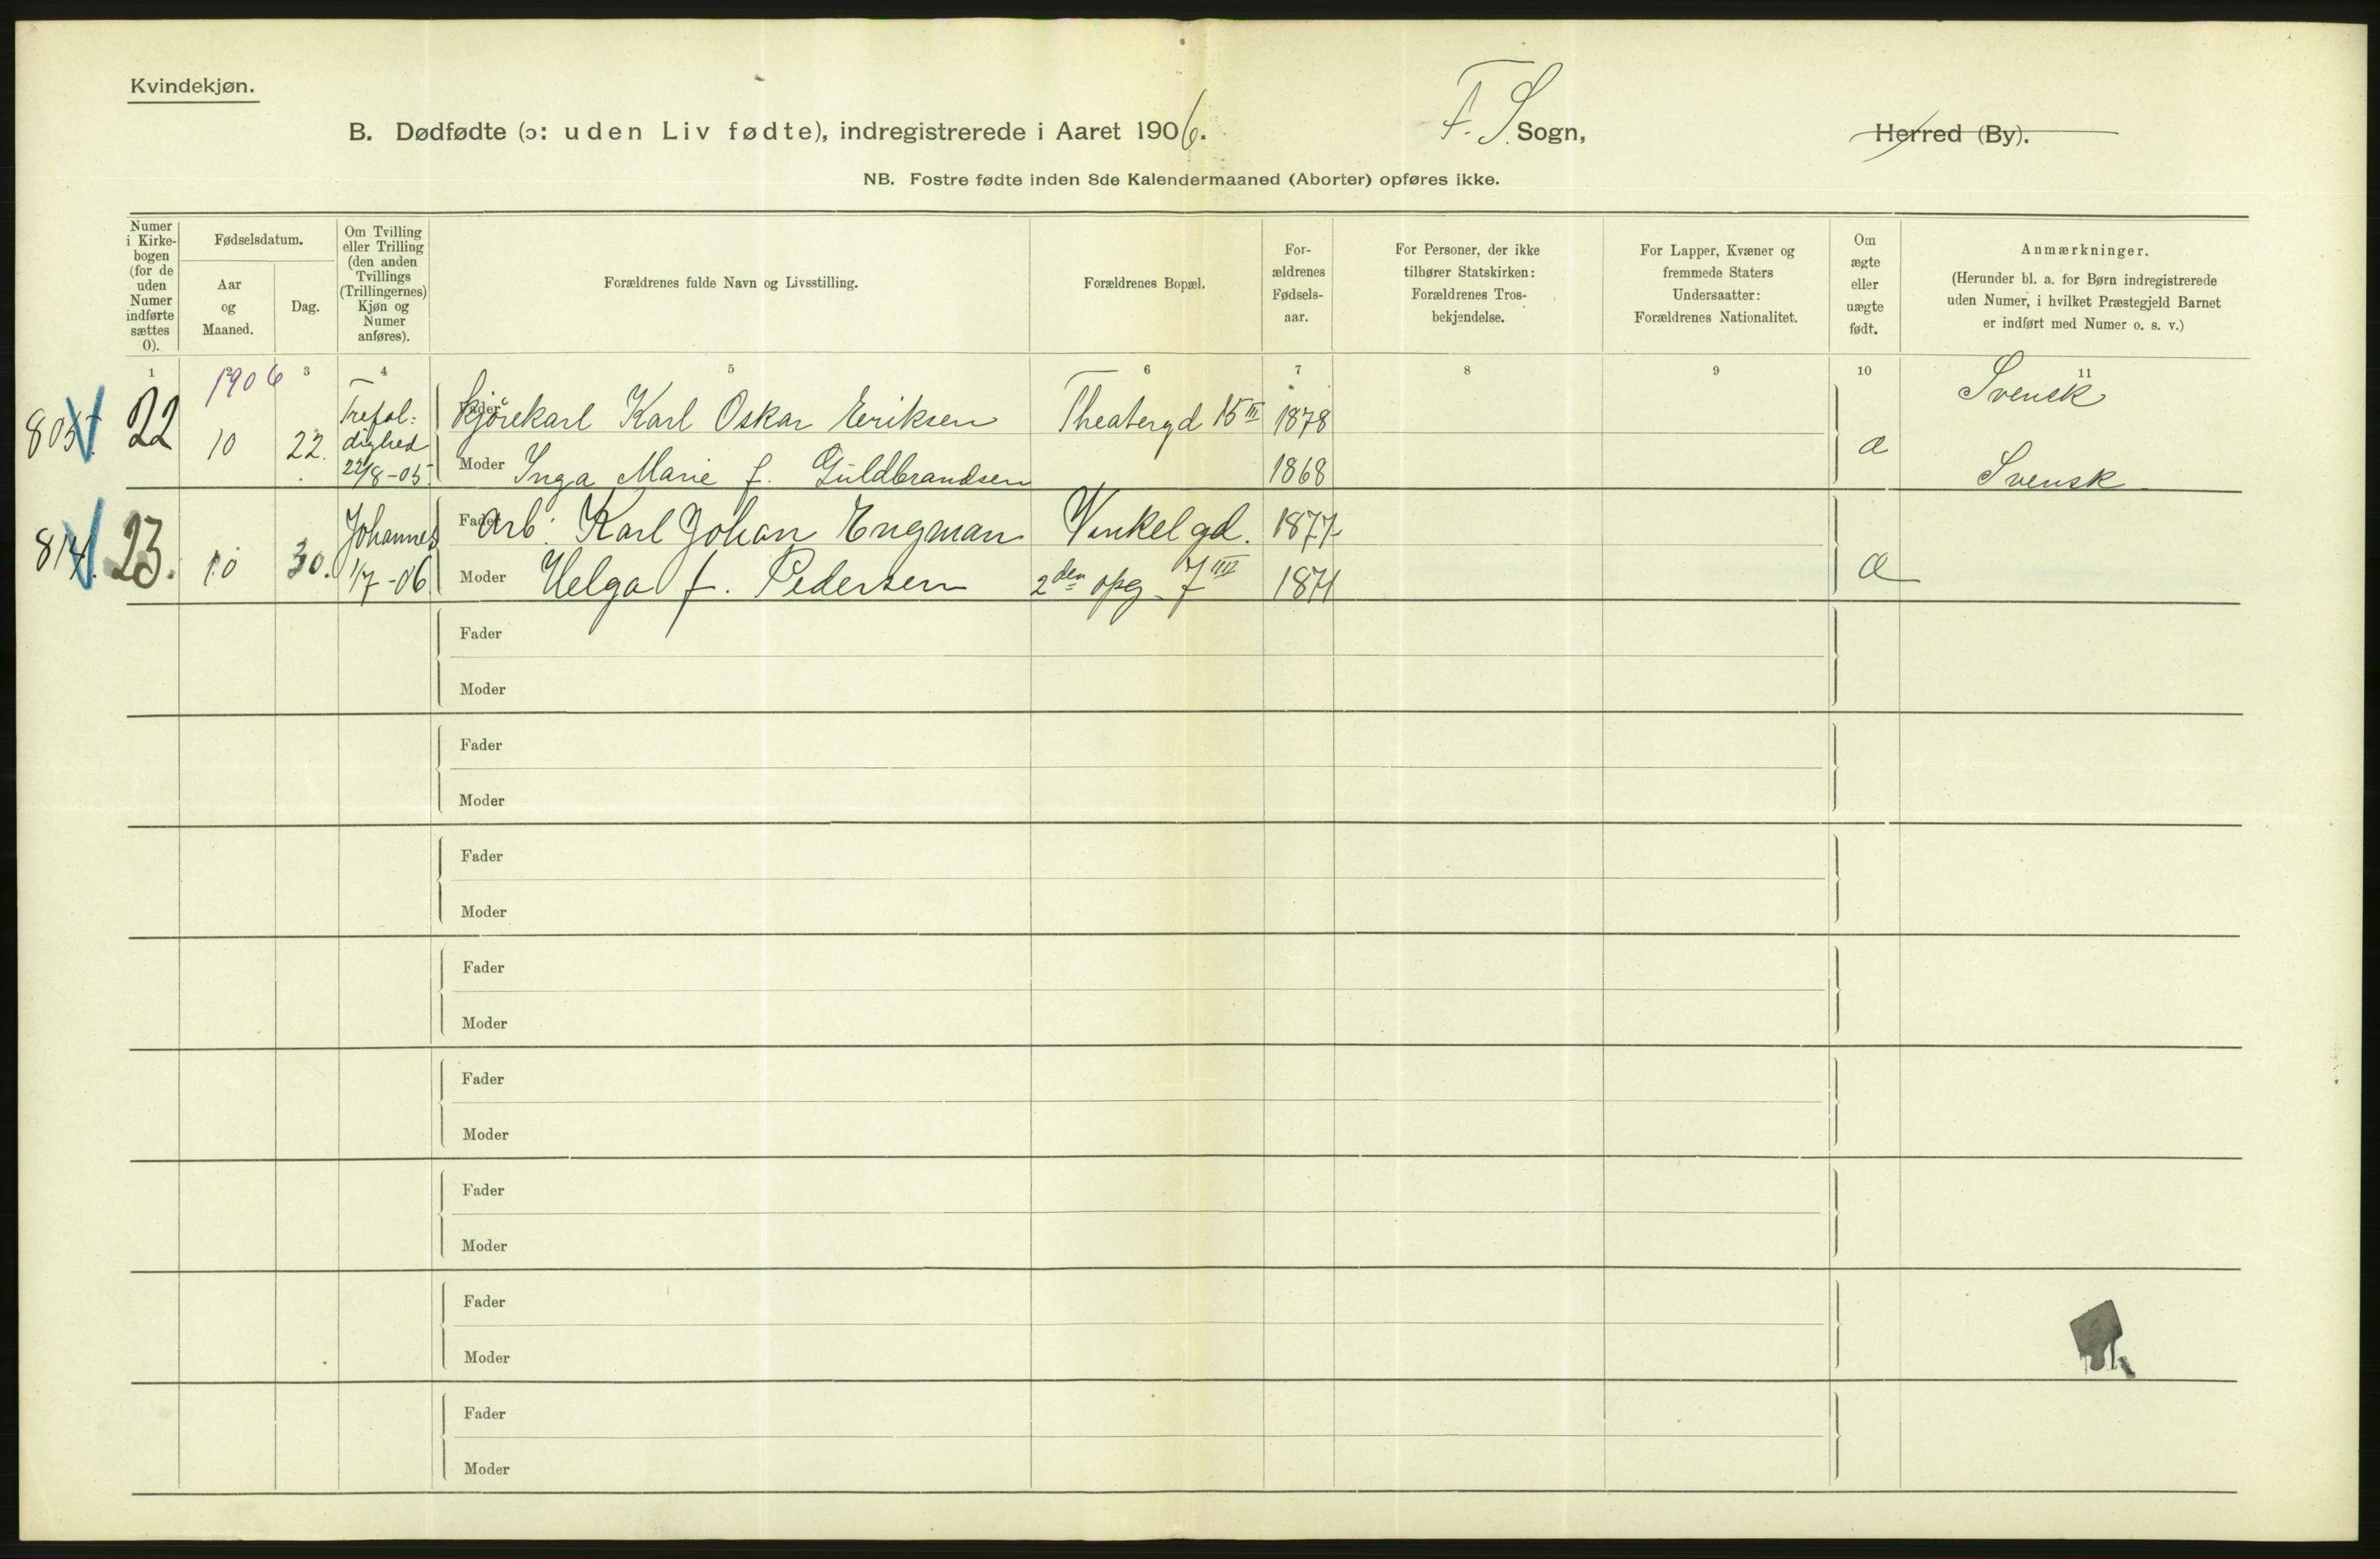 Kvindekjøn.
B. Dødfødte (ɔ: uden Liv fødte), indregistrerede i Aaret 1906.
F. S. Sogn,
Herred (By).
NB. Fostre fødte inden 8de Kalendermaaned (Aborter) opføres ikke.
Numer
i Kirke-
bogen
(for de
uden
Numer
indførte
sættes
0).
Fødselsdatum.
Aar
og
Maaned.
Dag.
Om Tvilling
eller Trilling
(den anden
Tvillings
(Trillingernes)
Kjøn og
Numer
anføres).
Forældrenes fulde Navn og Livsstilling.
Forældrenes Bopæl.
For-
ældrenes
Fødsels-
aar.
For Personer, der ikke
tilhører Statskirken:
Forældrenes Tros-
bekjendelse.
For Lapper, Kvæner og
fremmede Staters
Undersaatter:
Forældrenes Nationalitet.
Om
ægte
eller
uægte
født.
Anmærkninger.
(Herunder bl. a. for Børn indregistrerede
uden Numer, i hvilket Præstegjeld Barnet
er indført med Numer o. s. v.)
1 2 3 4 5 6 7 8 9 10 11
1906
805. 22 10 22.
Trefol:
dighed
22/8-05
Fader Kjørekarl Karl Oskar Eeriksen Theatergd 15 III 1878 Svensk
Moder Inga Marie f. Guldbrandsen 1868 a Svensk
814. 23. 10 30.
Johannes
1/7-06
Fader Arb: Karl Johan Engman Vinkelgd. 1877
Moder Helga f. Pedersen 2den opg. 7 IIII 1871 a
Fader
Moder
Fader
Moder
Fader
Moder
Fader
Moder
Fader
Moder
Fader
Moder
Fader
Moder
Fader
Moder